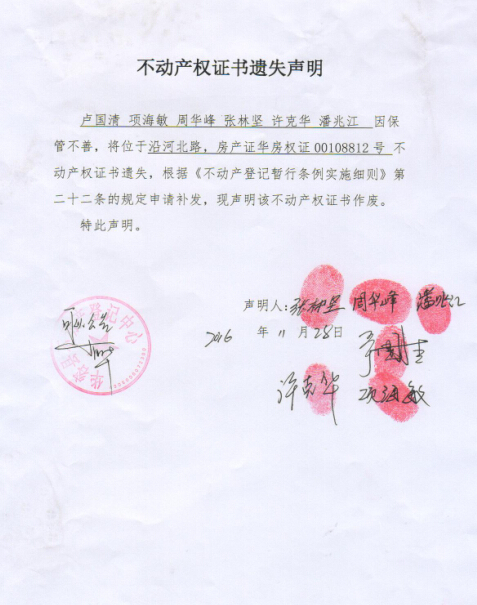 不动产权证书遗失声明
卢国清 项海敏 周华峰 张林坚 许克华 潘兆江 因保
管不善，将位于沿河北路，房产证华房权证00108812号 不
动产权证书遗失，根据《不动产登记暂行条例实施细则》第
二十二条的规定申请补发，现声明该不动产权证书作废。
特此声明。
声明人：张林坚 周华峰 潘兆江
2016 年 11 月 28日
卢国清
许克华 项海敏
登记中心